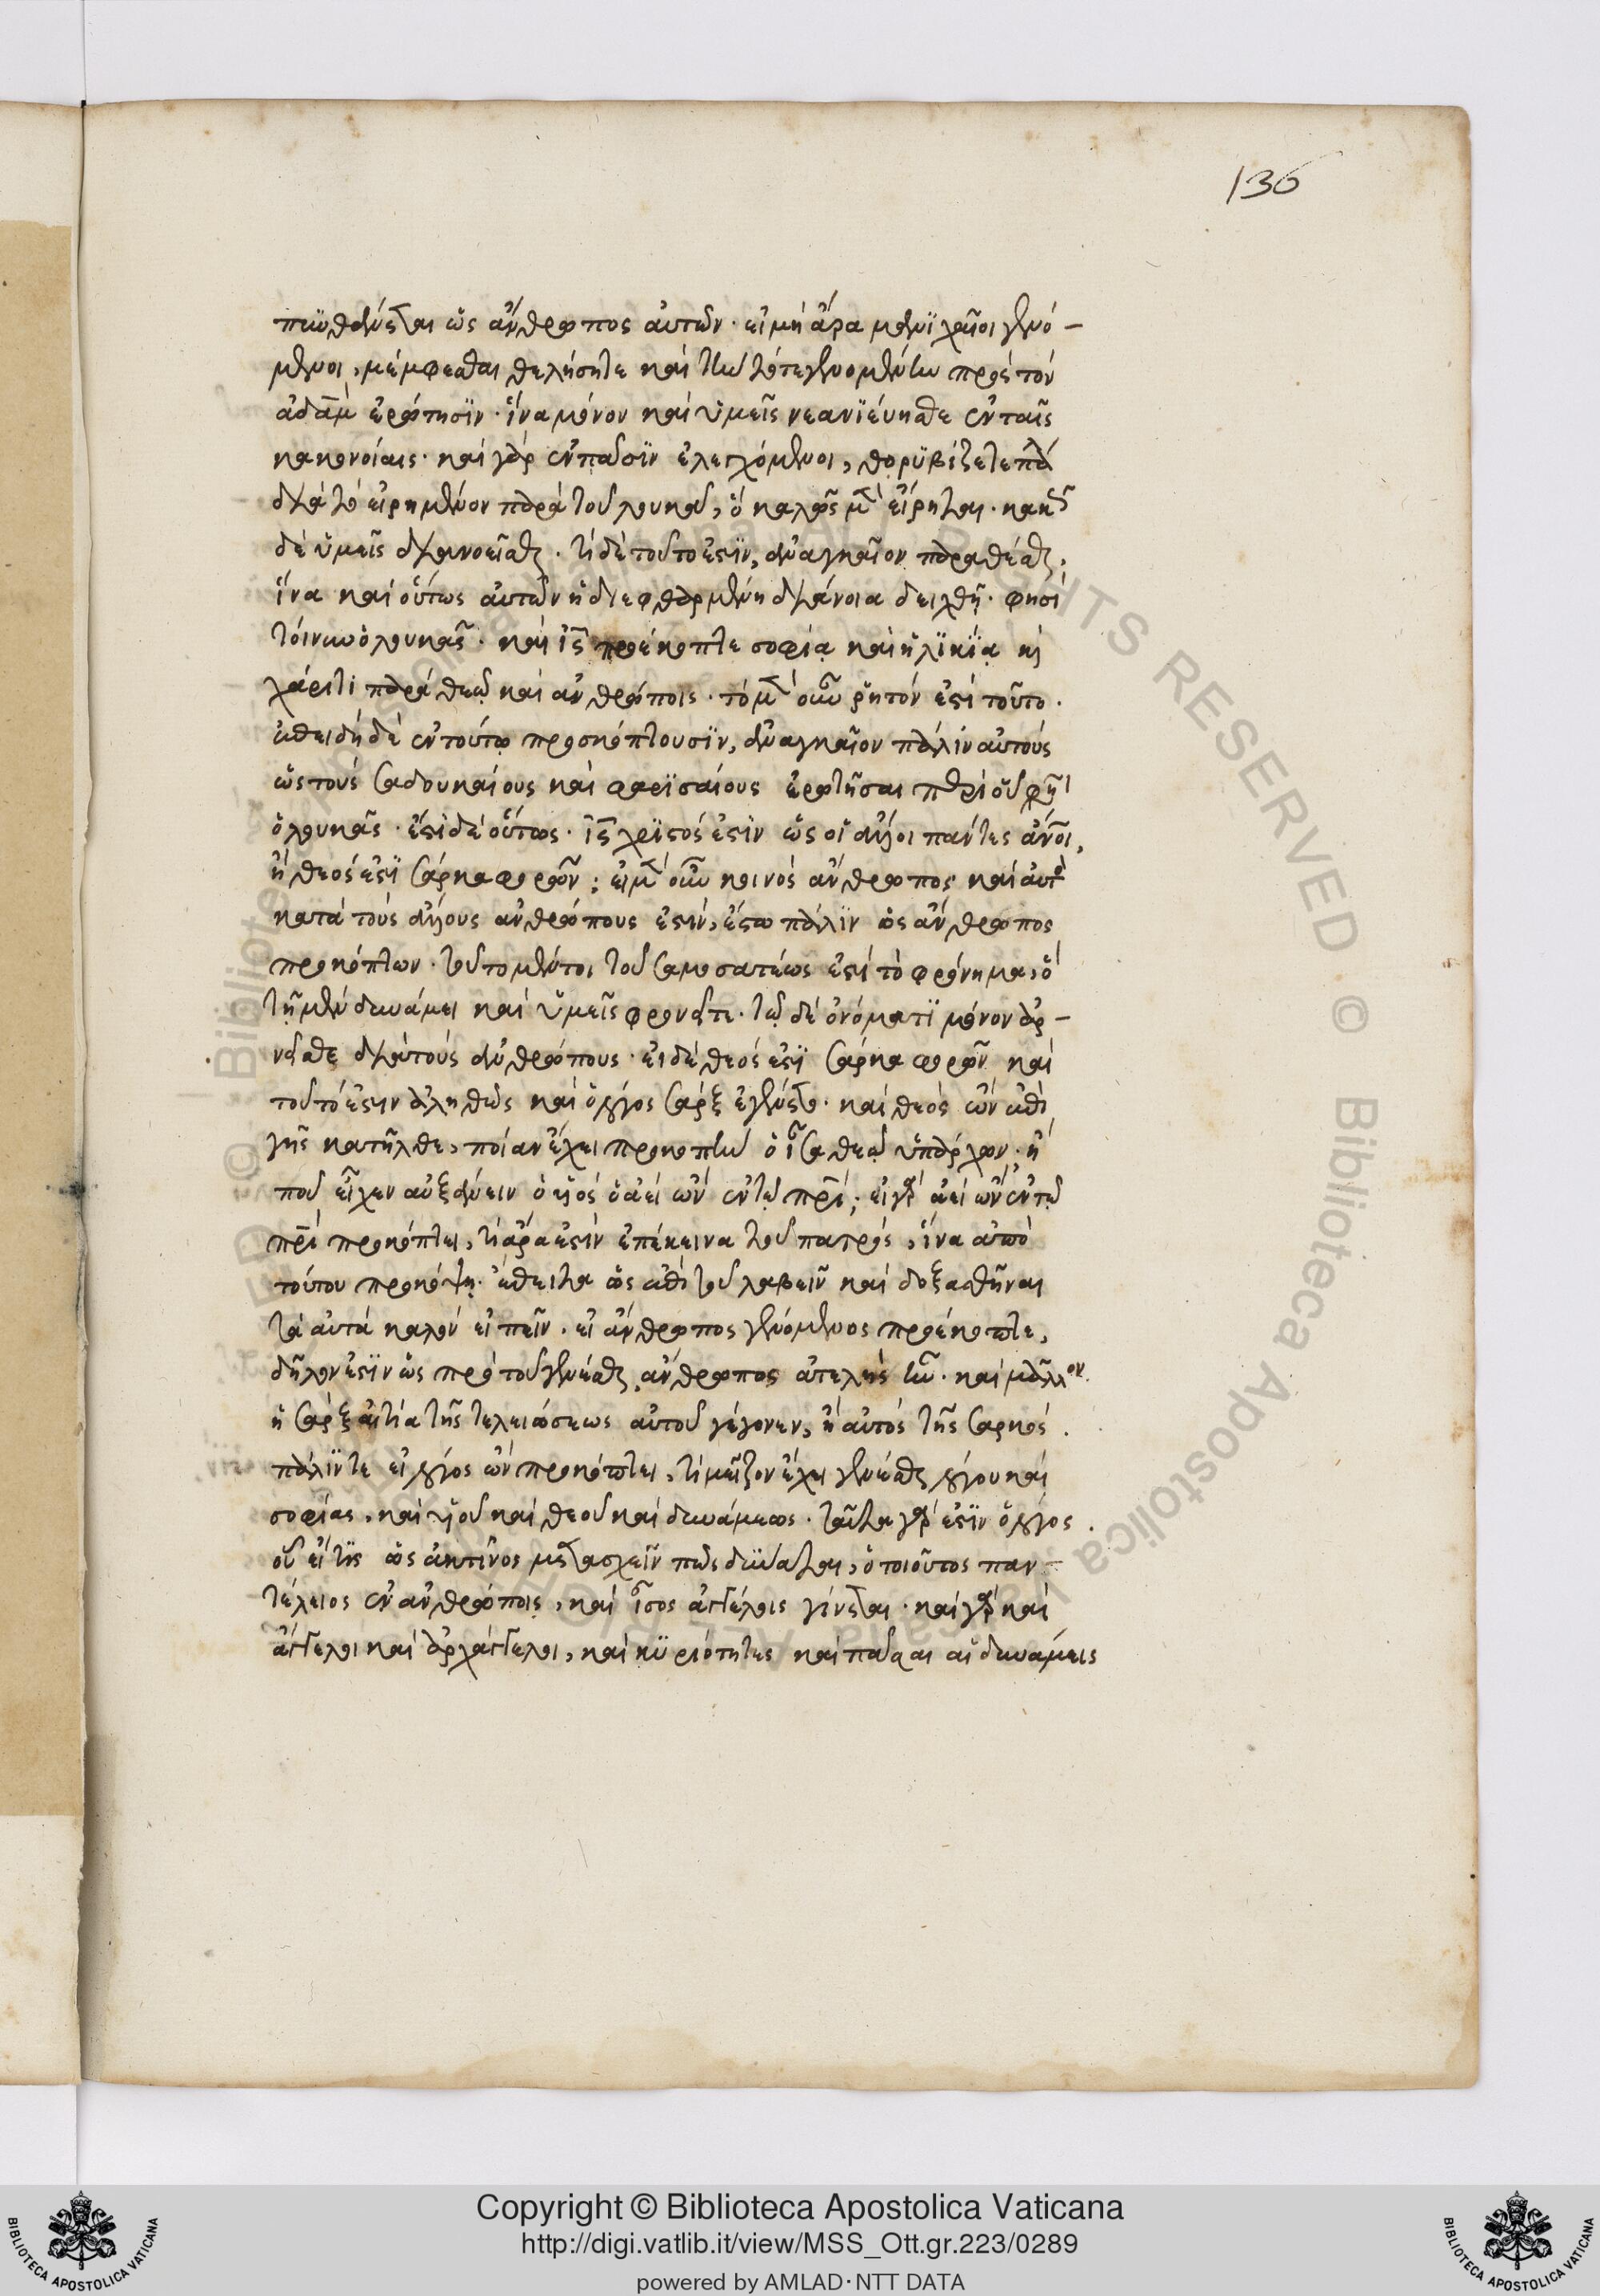 136
πυνθάνεται ὡς ἄνθρωπος αὐτῶν· εἰ μὴ ἄρα μανιχαῖοι γενό-
μενοι, μέμφεσθαι θελήσητε καὶ τὴν τότε γενομένην πρὸς τὸν
ἀδὰμ ἐρώτησϊν· ἵνα μόνον καὶ ὑμεῖς νεανϊεύησθε ἐν ταῖς
κακονοίαις· καὶ γὰρ ἐν πᾶσϊν ἐλεγχόμενοι, θορϋβίζετε
διὰ τὸ εἰρημένον παρὰ τοῦ λουκᾶ, ὃ καλῶς μὲν εἴρηται· κακῶς
δὲ ὑμεῖς διανοεῖσθε· τί δὲ τοῦτό ἐστϊν, ἀναγκαῖον παραθέσθαι,
ἵνα καὶ οὕτως αὐτῶν ἡ διεφθαρμένη διάνοια δειχθῇ· φησὶ
τοίνυν ὁ λουκᾶς· καὶ ἰς προέκοπτε σοφίᾳ καὶ ἡλϊκίᾳ κ
χάριτι παρὰ θεῷ καὶ ἀνθρώποις· τὸ μὲν οὖν ῥητόν ἐστι τοῦτο·
ἐπειδὴ δὲ ἐν τούτῳ προσκόπτουσϊν, ἀναγκαῖον πάλιν αὐτοὺς
ὡς τοὺς σαδουκαίους καὶ φαρϊσαίους ἐρωτῆσαι περὶ οὗ φησὶ
ὁ λουκᾶς· ἔστι δὲ οὕτως· ἰς χρϊστός ἐστϊν ὡς οἱ ἄλλοι πάντες ἄνοι,
ἢ θεός ἐστϊ σάρκα φορῶν; εἰ μὲν οὖν κοινὸς ἄνθρωπος καὶ αὐτὸς
κατὰ τοὺς ἄλλους ἀνθρώπους ἐστίν, ἔστω πάλϊν ὡς ἄνθρωπος
προκόπτων· τοῦτο μέντοι τοῦ σαμοσατέως ἐστὶ τὸ φρόνημα, ὃ
τῇ μὲν δυνάμει καὶ ὑμεῖς φρονεῖτε· τῷ δὲ ὀνόματϊ μόνον ἀρ-
νεῖσθε διὰ τοὺς ἀνθρώπους· εἰ δὲ θεός ἐστϊ σάρκα φορῶν καὶ
τοῦτό ἐστιν ἀληθῶς καὶ ὁ λόγος σὰρξ ἐγένετο· καὶ θεὸς ὢν ἐπὶ
γῆς κατῆλθε, ποίαν ἔχει προκοπὴν ὁ ἴσα θεῷ ὑπάρχων· ἢ
ποῦ εἶχεν αὐξάνειν ὁ υἱὸς ὁ ἀεὶ ὢν ἐν τῷ πρι; εἰ γὰρ ἀεὶ ὢν ἐν τῷ
πρι προκόπτει, τί ἄρα ἐστὶν ἐπέκεινα τοῦ πατρὸς, ἵνα ἀπὸ
τούτου προκόψῃ· ἔπειτα ὡς ἐπὶ τοῦ λαβεῖν καὶ δοξασθῆναι
τὰ αὐτὰ καλὸν εἰπεῖν· εἰ ἄνθρωπος γενόμενος προέκοπτε,
δῆλόν ἐστϊν ὡς πρὸ τοῦ γενέσθαι ἄνθρωπος ἀτελὴς ἦν· καὶ μᾶλλον
ἡ σὰρξ αἰτία τῆς τελειώσεως αὐτοῦ γέγονεν, ἢ αὐτὸς τῆς σαρκός·
πάλϊν τε εἰ λόγος ὢν προκόπτει, τί μεῖζον ἔχει γενέσθαι λόγου καὶ
σοφίας, καὶ υἱοῦ καὶ θεοῦ καὶ δυνάμεως· ταῦτα γάρ ἐστϊν ὁ λόγος·
οὗ εἴ τϊς ὡς ἀκτῖνος μετασχεῖν πως δύναται, ὁ τοιοῦτος παν-
τέλειος ἐν ἀνθρώποις, καὶ ἴσος ἀγγέλοις γίνεται· καὶ γὰρ καὶ
ἄγγελοι καὶ ἀρχάγγελοι, καὶ κϋριότητες καὶ πᾶσαι αἱ δυνάμεις
Copyright © Biblioteca Apostolica Vaticana
http://digi.vatlib.it/view/MSS_Ott.gr.223/0289
powered by AMLAD·NTT DATA